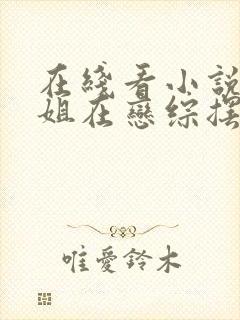 在綫看小説
姐在戀綜擺
唯愛鈴木